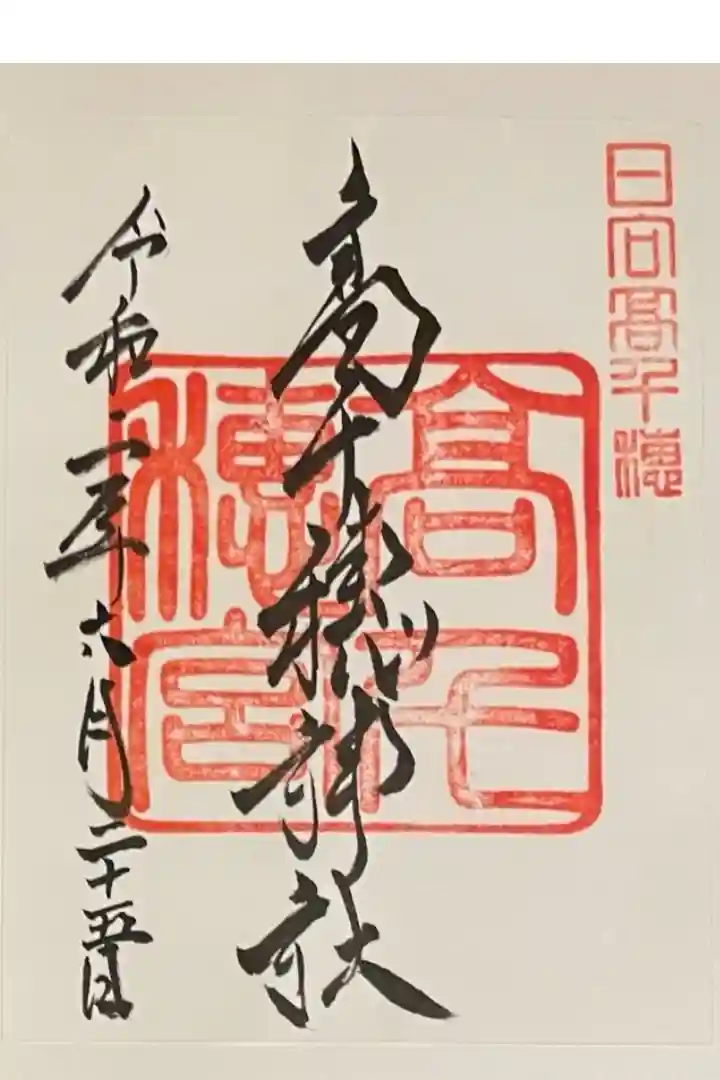 日向高千穂
高千穂神社
高千穂宮
令和二年六月二十五日